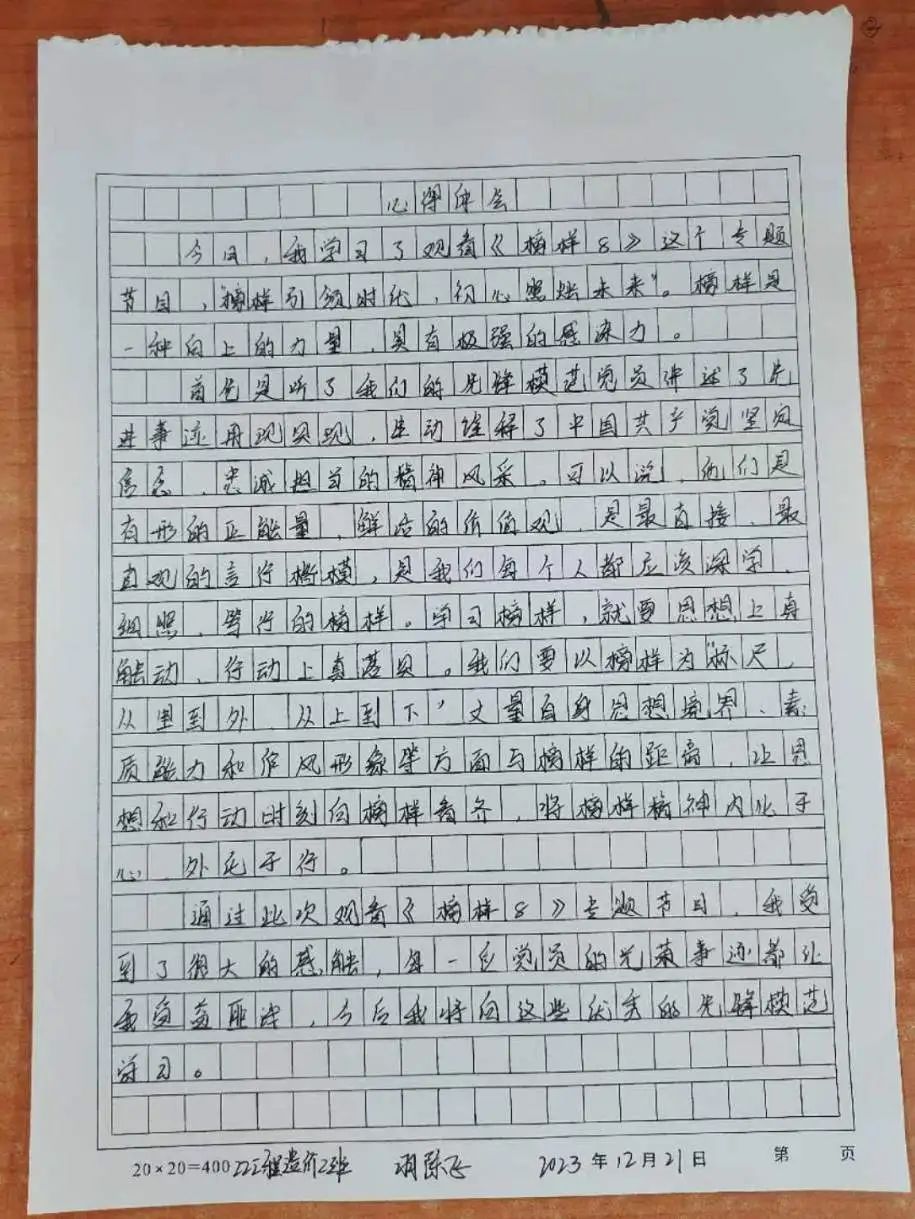 心得体会
今日，我学习了观看《榜样8》这个专题
节目，“榜样引领时代，初心照耀未来”。榜样是
一种向上的力量，具有极强的感染力。
首先是听了我们的先锋模范党员讲述了先
进事迹再现，生动诠释了中国共产党坚定
信念、忠诚担当的精神风采。可以说，他们是
有形的正能量，鲜活的价值观，是最直接、最
直观的言行楷模，是我们每个人都应该深学、
细照、笃行的榜样。学习榜样，就要思想上真
触动、行动上真落实。我们要以榜样为“标尺，
从里到外、从上到下”丈量自身思想境界、素
质能力和作风形象等方面与榜样的距离，让思
想和行动时刻向榜样看齐，将榜样精神内化于
心、外化于行。
通过此次观看《榜样8》专题节目，我受
到了很大的感触，每一位党员的光荣事迹都让
我受益匪浅，今后我将向这些优秀的先锋模范
学习。
20×20=400 22工程造价2班 陈飞 2023年12月21日 第 页